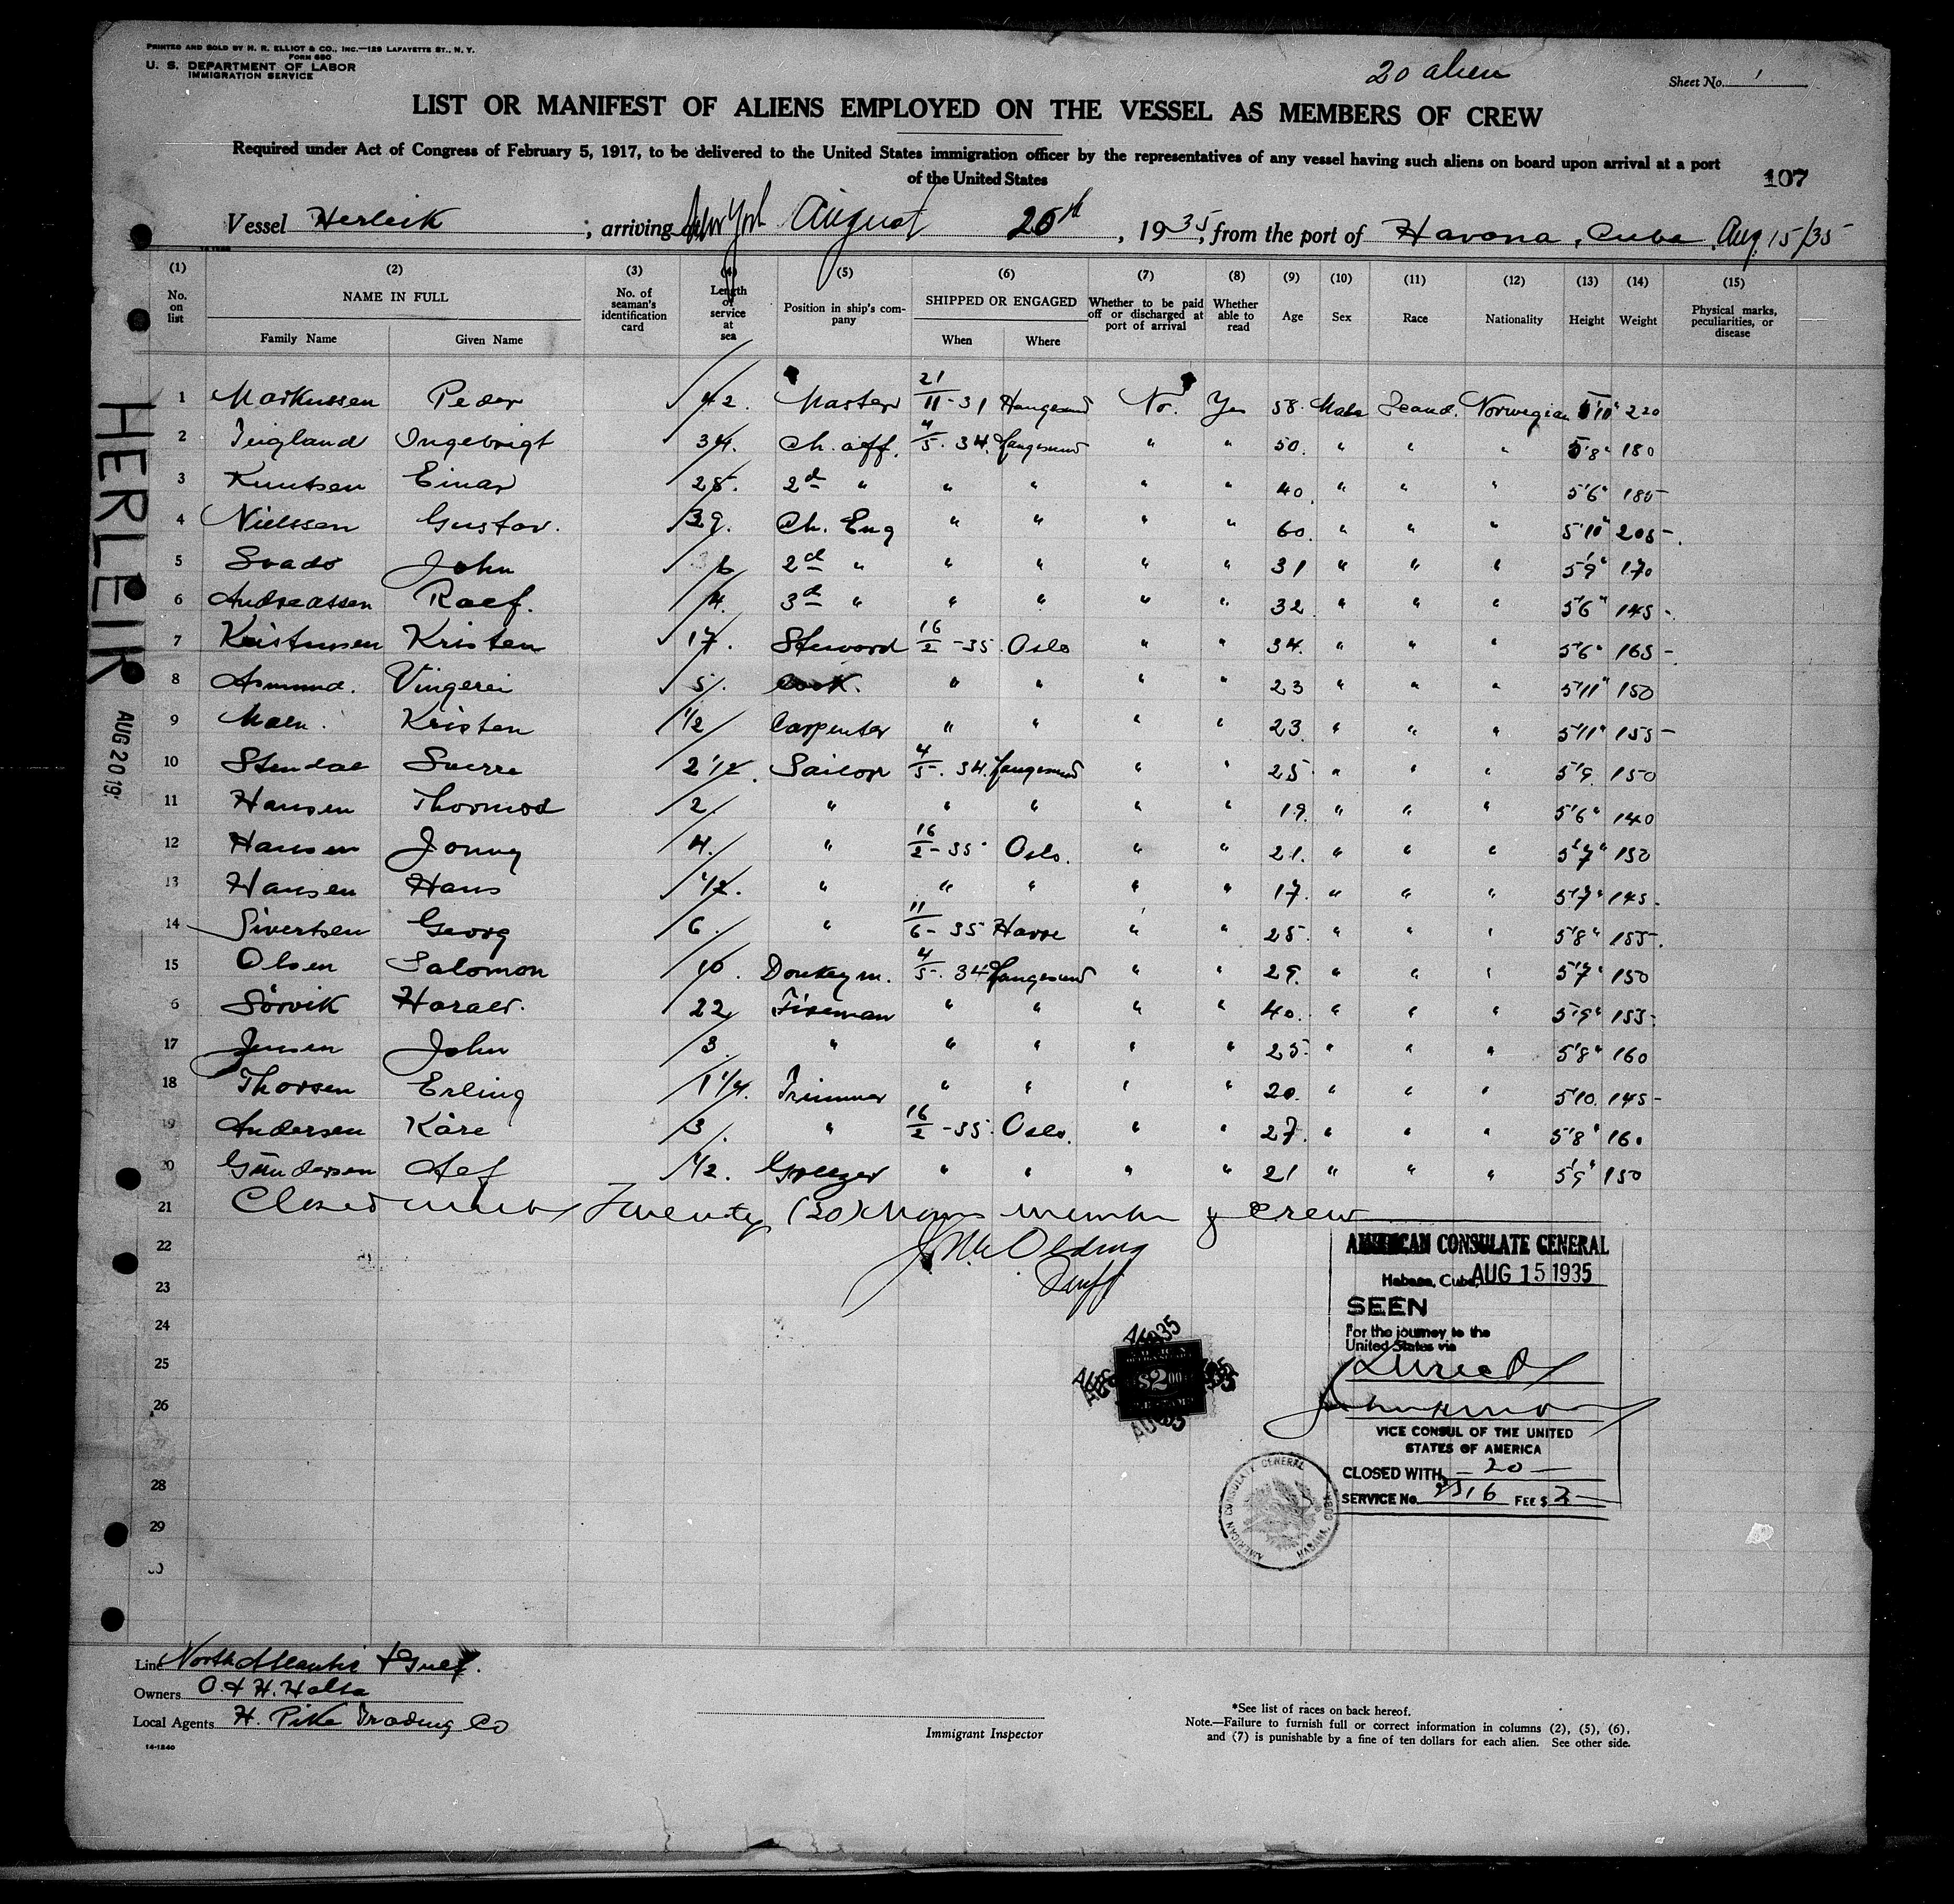 PRINTED AND SOLD BY H. R. ELLIOT & CO., INC.—129 LAFAYETTE ST., N. Y.
FORM 680
U. S. DEPARTMENT OF LABOR
IMMIGRATION SERVICE
20 alien
Sheet No. 1
LIST OR MANIFEST OF ALIENS EMPLOYED ON THE VESSEL AS MEMBERS OF CREW
Required under Act of Congress of February 5, 1917, to be delivered to the United States immigration officer by the representatives of any vessel having such aliens on board upon arrival at a port
of the United States
107
Vessel Herleik ; arriving New York August 20th, 1935, from the port of Havana, Cuba, Aug. 15/35
(1) (2) (3) (4) (5) (6) (7) (8) (9) (10) (11) (12) (13) (14) (15)
No. on list NAME IN FULL No. of seaman's identification card Length of service at sea Position in ship's company SHIPPED OR ENGAGED Whether to be paid off or discharged at port of arrival Whether able to read Age Sex Race Nationality Height Weight Physical marks, peculiarities, or disease
Family Name Given Name When Where
1 Markussen Peder 42. Master 21/11-31 Haugesund No. Yes 58. Male Scand. Norwegian 5'10" 220
2 Teigland Ingebrigt 34. Ch. off. 4/5. 34. Langesund " " 50. " " " 5'8" 180
3 Knutsen Einar 25. 2d " " " " " 40. " " " 5'6" 185
4 Nielssen Gustav. 39. Ch. Eng " " " " 60. " " " 5'10" 205
5 Svadö John 2d " " " " " 31 " " " 5'9" 170
6 Andreassen Roef. 4. 3d " " " " " 32 " " " 5'6" 145
7 Kristensen Kristen 17. Steward 16/2-35. Oslo " " 34. " " " 5'6" 165
8 Asmund. Vingerei 5. Cook. " " " " 23 " " " 5'11" 150
9 Maln. Kristen 1/2 Carpenter " " " " 23. " " " 5'11" 155
10 Stendal Sverre 2 1/2. Sailor 4/5. 34. Langesund " " 25 " " " 5'9 150
11 Hansen Thormod 2. " " " " " 19. " " " 5'6" 140
12 Hansen Jonny 4. " 16/2-35 Oslo. " " 21. " " " 5'7" 150
13 Hansen Hans 1/2. " " " " " 17. " " " 5'7" 145
14 Sivertsen Georg 6. " 11/6-35 Havre " " 25. " " " 5'8" 155
15 Olsen Salomon 10. Donkeym. 4/5. 34 Langesund " " 29. " " " 5'7" 150
6 Sörvik Harald. 22 Fireman " " " " 40. " " " 5'9" 155
17 Jensen John 3. " " " " " 25. " " " 5'8" 160
18 Thorsen Erling 1 1/4. Trimmer " " " " 20. " " " 5'10. 145
19 Andersen Kåre 3. " 16/2-35. Oslo. " " 27. " " " 5'8" 160
20 Gundersen Alf 1/2. Greezer " " " " 21 " " " 5'9" 150
21 Closed with Twenty (20) members of crew
22
23
24
25
26
28
29
HERLEIK
AUG 20 19
AMERICAN CONSULATE GENERAL
Habana, Cuba, AUG 15 1935
SEEN
For the journey to the
United States via
Direct
VICE CONSUL OF THE UNITED
STATES OF AMERICA
CLOSED WITH — 20 —
SERVICE No. 2516 FEE $ 2—
$2.00
AMERICAN CONSULATE GENERAL
HABANA, CUBA
Line North Atlantic & Gulf.
Owners O. & H. Holta
Local Agents H. Pike Trading Co
14-1240
Immigrant Inspector
*See list of races on back hereof.
Note.—Failure to furnish full or correct information in columns (2), (5), (6),
and (7) is punishable by a fine of ten dollars for each alien. See other side.